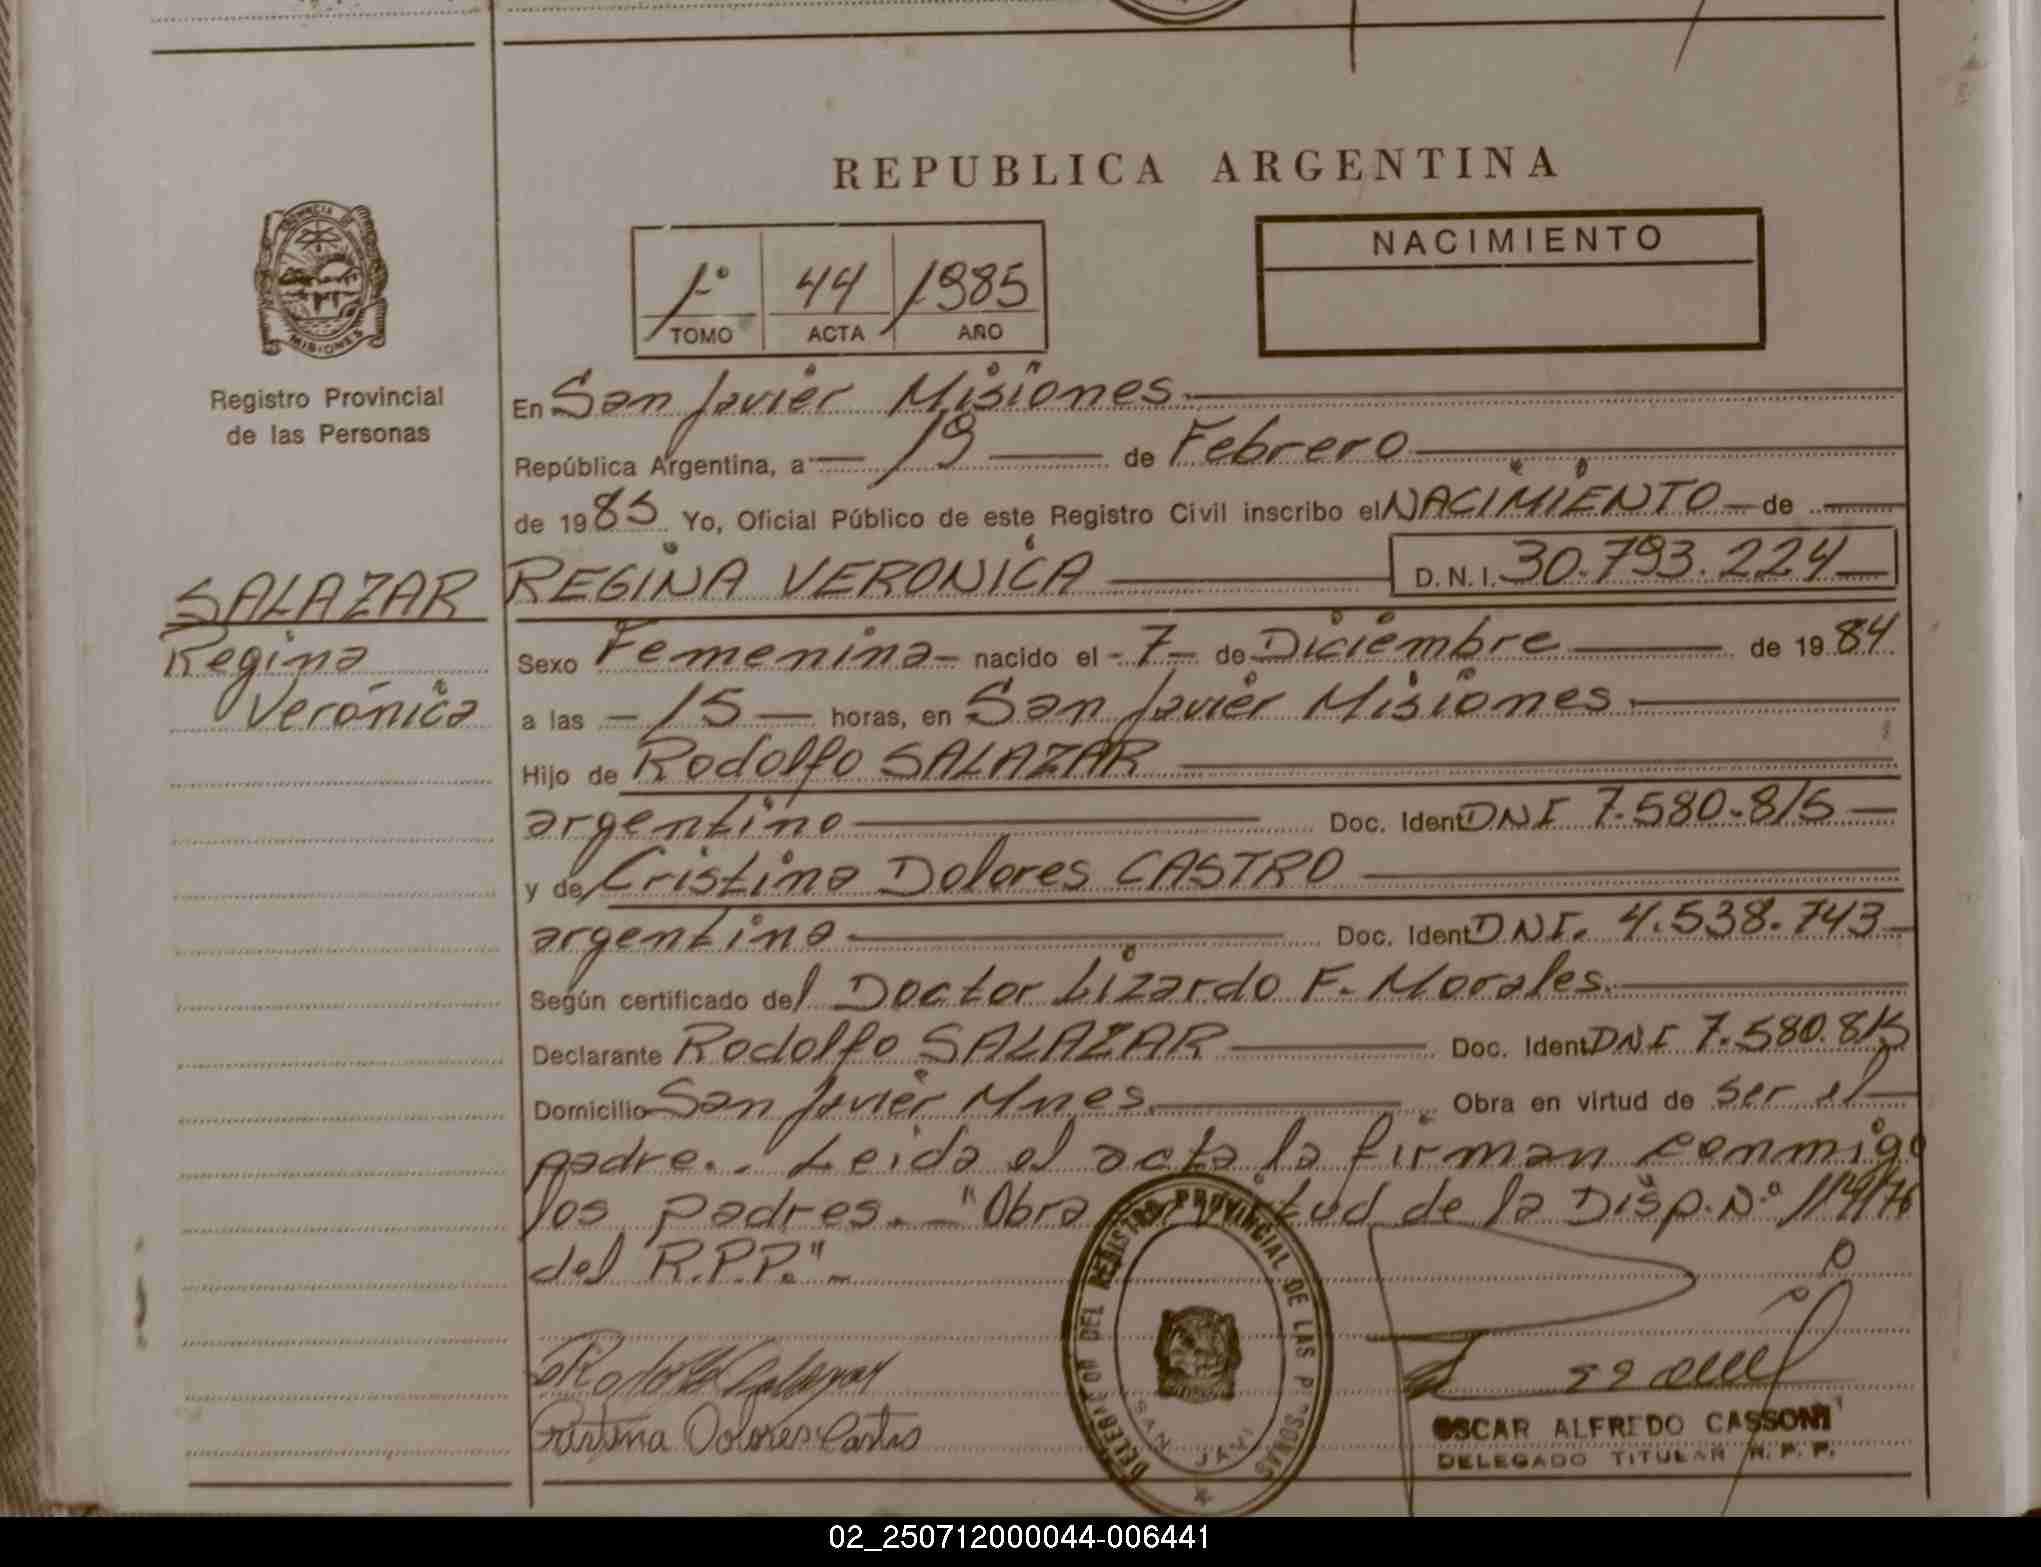 REPUBLICA ARGENTINA
PROVINCIA DE
MISIONES
Registro Provincial
de las Personas
1º 44 1985
TOMO ACTA AÑO
NACIMIENTO
En San Javier Misiones
República Argentina, a 19 de Febrero
de 1985 Yo, Oficial Público de este Registro Civil inscribo el NACIMIENTO de
SALAZAR
Regina
Verónica
REGINA VERONICA D.N.I. 30.793.224
Sexo Femenina nacido el 7 de Diciembre de 1984
a las 15 horas, en San Javier Misiones
Hijo de Rodolfo SALAZAR
argentino Doc. Ident DNI 7.580.815
y de Cristina Dolores CASTRO
argentina Doc. Ident DNI. 4.538.743
Según certificado del Doctor Lizardo F. Morales.
Declarante Rodolfo SALAZAR Doc. Ident DNI 7.580.815
Domicilio San Javier Mnes. Obra en virtud de ser el
padre.. Leida el acta la firman conmigo
los padres. "Obra tud de la Disp. Nº 114/76
del R.P.P."
Rodolfo Salazar
Cristina Dolores Castro
DEL REGISTRO PROVINCIAL DE LAS PERSONAS
SAN JAVI
OSCAR ALFREDO CASSONI
DELEGADO TITULAR R. P. P.
02_250712000044-006441